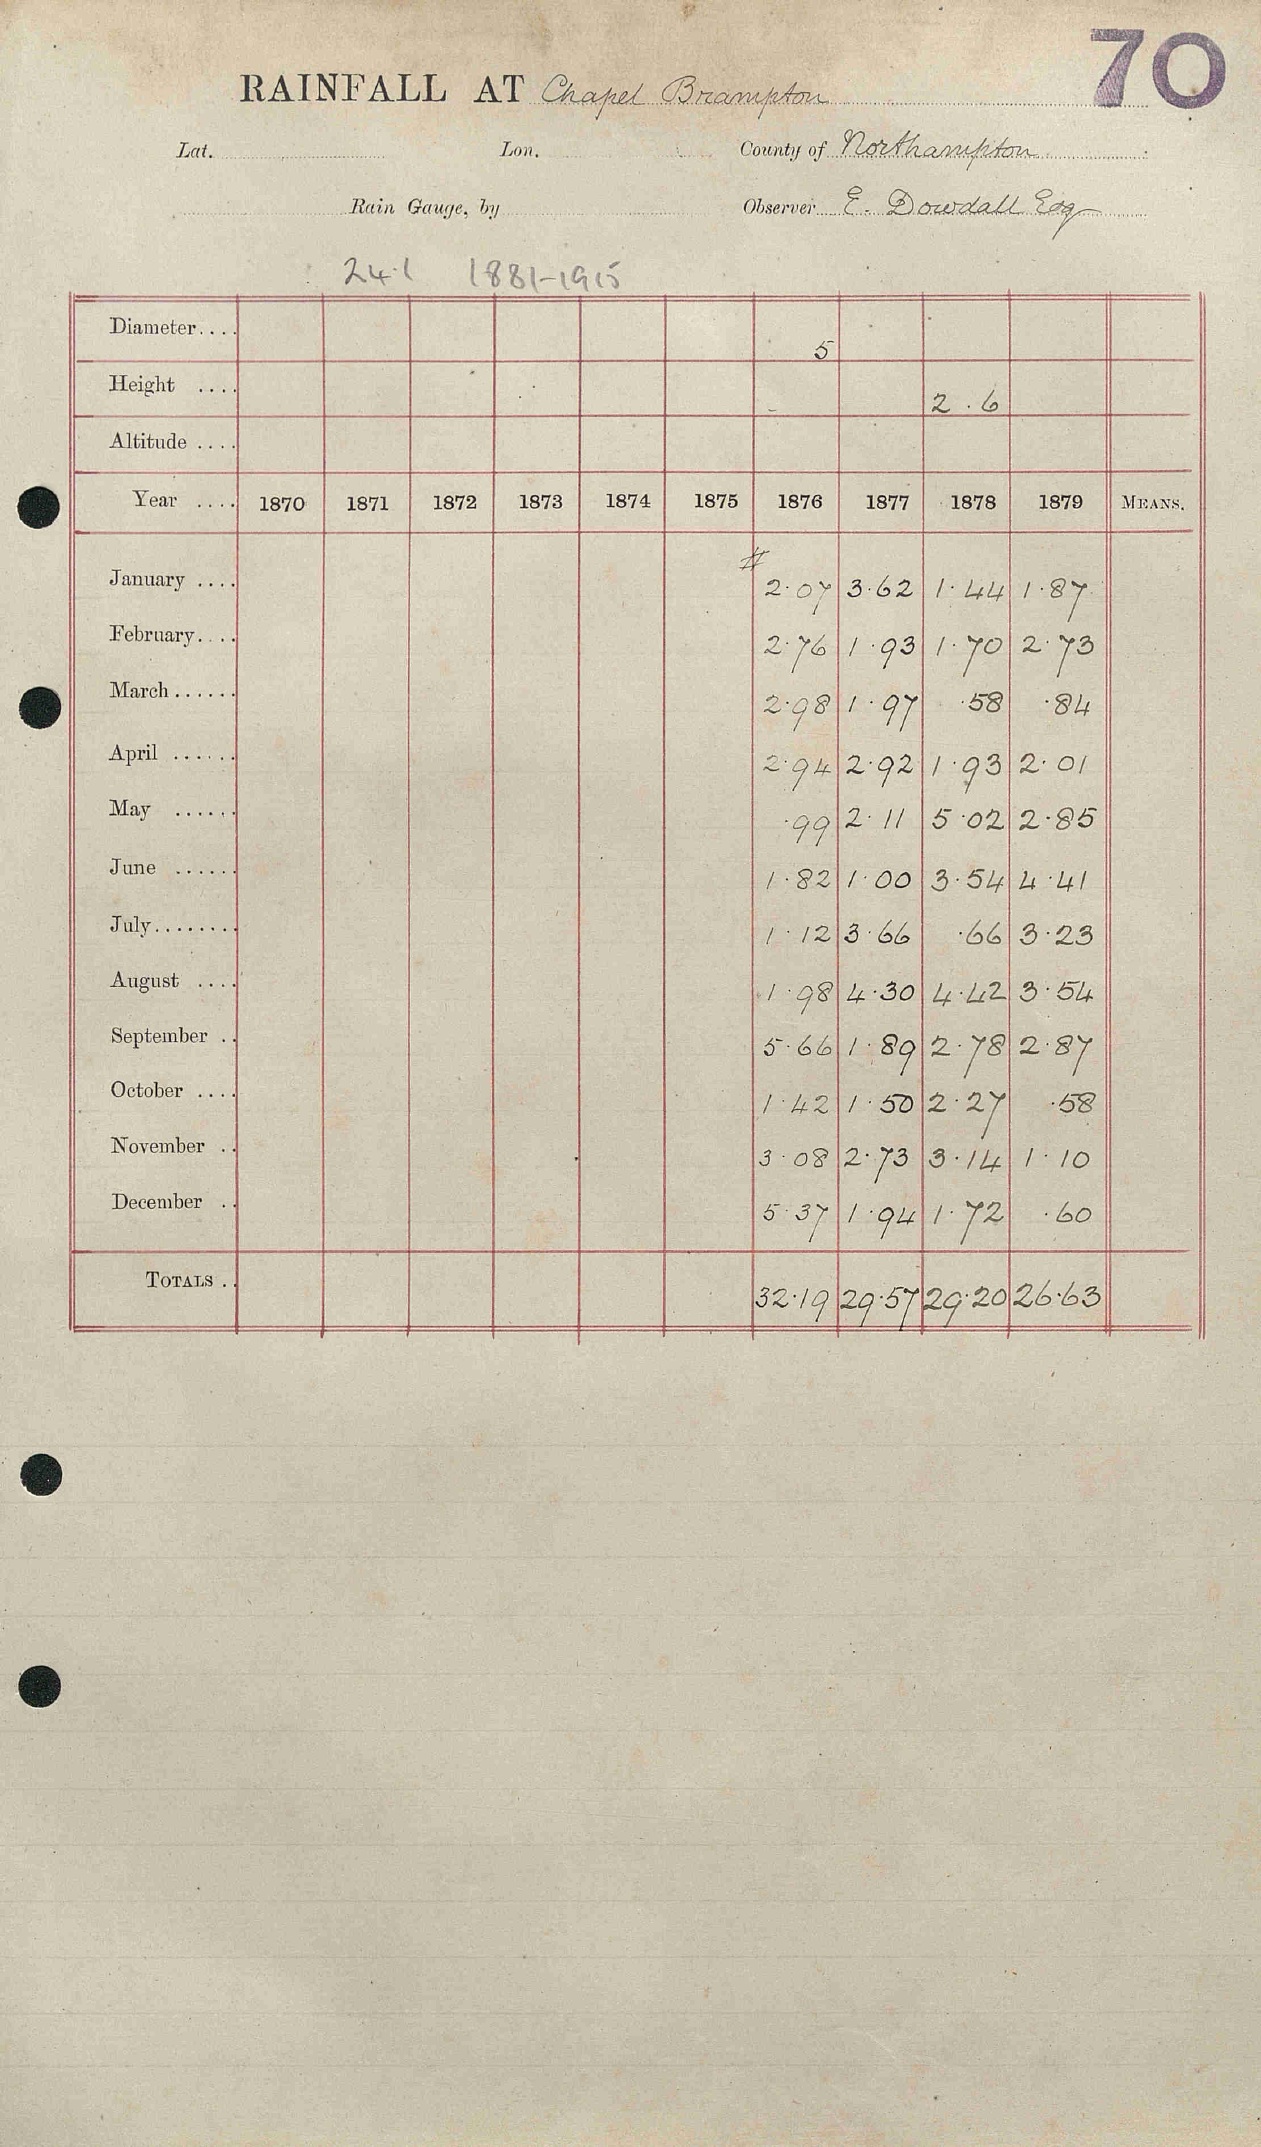 70
RAINFALL AT Chapel Brampton
Lat. Lon. County of Northampton
Rain Gauge, by Observer E. Dowdall Esq
24.1 1881-1915
Diameter.... 5
Height .... 2 . 6
Altitude ....
Year .... 1870 1871 1872 1873 1874 1875 1876 1877 1878 1879 MEANS.
#
January .... 2.07 3.62 1.44 1.87
February.... 2.76 1.93 1.70 2.73
March...... 2.98 1.97 .58 .84
April ...... 2.94 2.92 1.93 2.01
May ...... .99 2.11 5.02 2.85
June ...... 1.82 1.00 3.54 4.41
July........ 1.12 3.66 .66 3.23
August .... 1.98 4.30 4.42 3.54
September .. 5.66 1.89 2.78 2.87
October .... 1.42 1.50 2.27 .58
November .. 3.08 2.73 3.14 1.10
December .. 5.37 1.94 1.72 .60
TOTALS .. 32.19 29.57 29.20 26.63